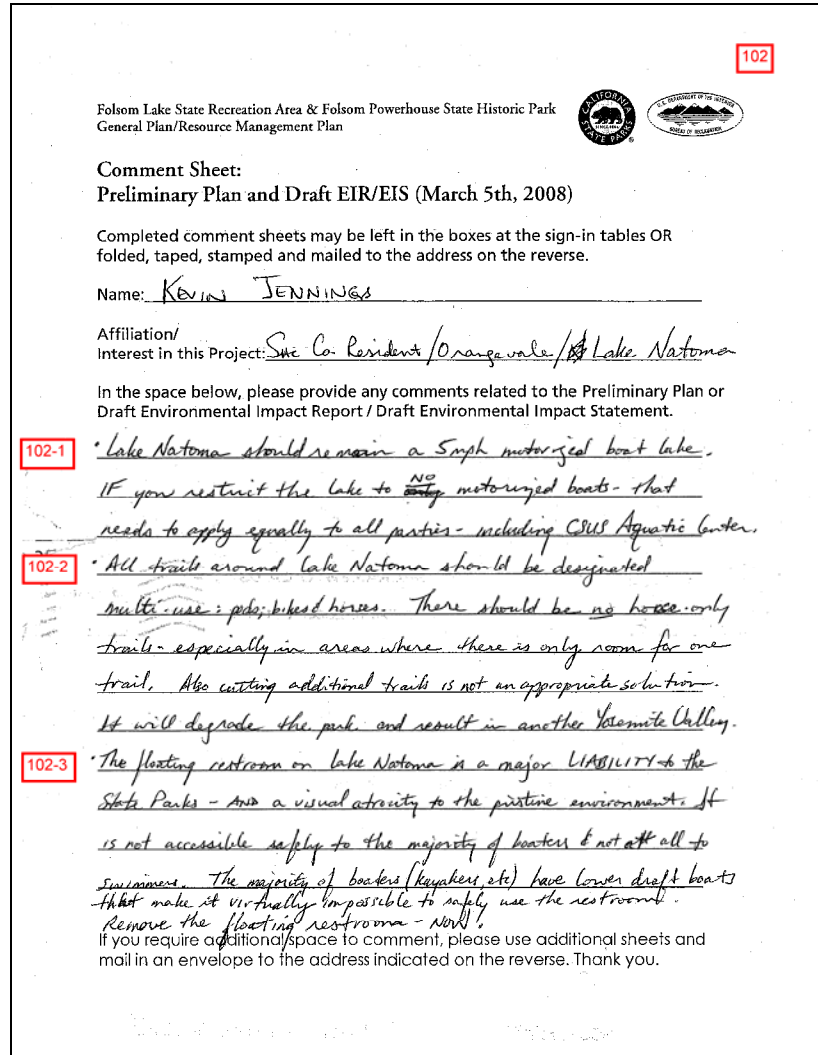 102
Folsom Lake State Recreation Area & Folsom Powerhouse State Historic Park
General Plan/Resource Management Plan
CALIFORNIA
STATE PARKS
U.S. DEPARTMENT OF THE INTERIOR
BUREAU OF RECLAMATION
Comment Sheet:
Preliminary Plan and Draft EIR/EIS (March 5th, 2008)
Completed comment sheets may be left in the boxes at the sign-in tables OR
folded, taped, stamped and mailed to the address on the reverse.
Name: KEVIN JENNINGS
Affiliation/
Interest in this Project: Sac Co. Resident/Orangevale/Lake Natoma
In the space below, please provide any comments related to the Preliminary Plan or
Draft Environmental Impact Report / Draft Environmental Impact Statement.
102-1 • Lake Natoma should remain a 5mph motorized boat lake.
IF you restrict the lake to NO motorized boats - that
needs to apply equally to all parties - including CSUS Aquatic Center.
102-2 • All trails around Lake Natoma should be designated
multi-use: peds, bikes & horses. There should be no horse-only
trails - especially in areas where there is only room for one
trail. Also cutting additional trails is not an appropriate solution.
It will degrade the park and result in another Yosemite Valley.
102-3 • The floating restroom on lake Natoma is a major LIABILITY to the
State Parks - AND a visual atrocity to the pristine environment. It
is not accessible safely to the majority of boaters & not at all to
swimmers. The majority of boaters (kayakers, etc) have lower draft boats
that make it virtually impossible to safely use the restroom.
Remove the floating restrooms - NOW!
If you require additional space to comment, please use additional sheets and
mail in an envelope to the address indicated on the reverse. Thank you.